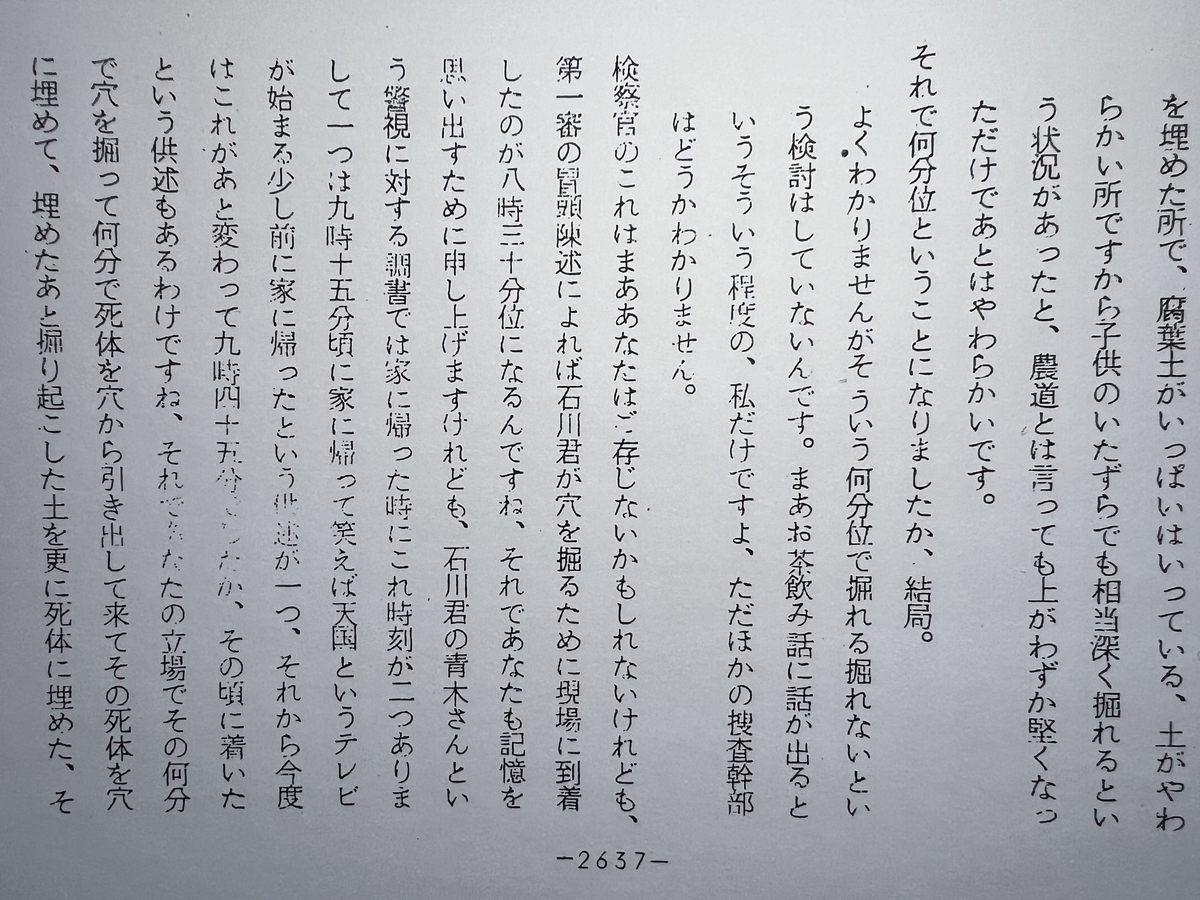 を埋めた所で、腐葉土がいっぱいはいっている、土がやわ
らかい所ですから子供のいたずらでも相当深く掘れるとい
う状況があったと、農道とは言っても上がわずか堅くなっ
ただけであとはやわらかいです。
それで何分位ということになりましたか、結局。
よくわかりませんがそういう何分位で掘れる掘れないとい
う検討はしていないんです。まあお茶飲み話に話が出ると
いうそういう程度の、私だけですよ、ただほかの捜査幹部
はどうかわかりません。
検察官のこれはまああなたはご存じないかもしれないけれども、
第一審の冒頭陳述によれば石川君が穴を掘るために現場に到着
したのが八時三十分位になるんですね、それであなたも記憶を
思い出すために申し上げますけれども、石川君の青木さんとい
う警視に対する調書では家に帰った時にこれ時刻が二つありま
して一つは九時十五分頃に家に帰って笑えば天国というテレビ
が始まる少し前に家に帰ったという供述が一つ、それから今度
はこれがあと変わって九時四十五分でしたか、その頃に着いた
という供述もあるわけですね、それであなたの立場でその何分
で穴を掘って何分で死体を穴から引き出して来てその死体を穴
に埋めて、埋めたあと掘り起こした土を更に死体に埋めた、そ
-2637-